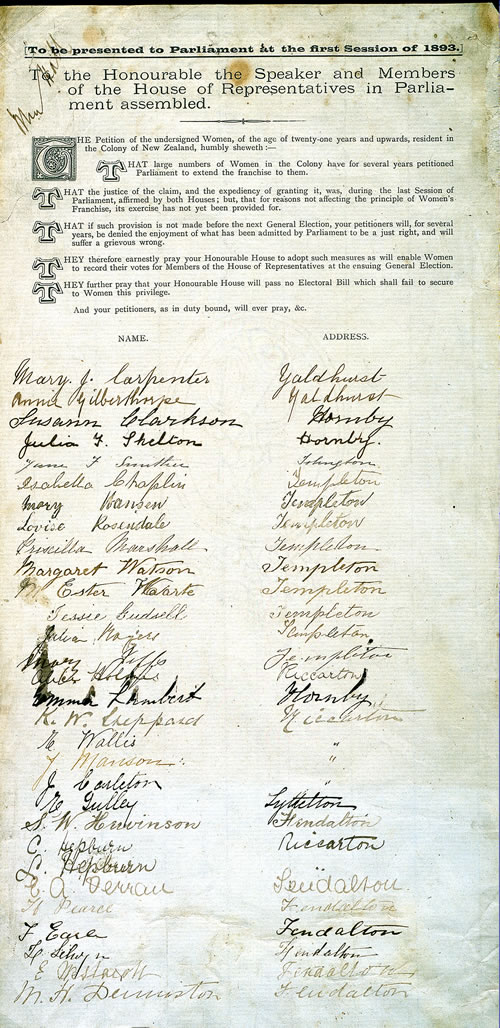 [To be presented to Parliament at the first Session of 1893.]
To the Honourable the Speaker and Members
of the House of Representatives in Parlia-
ment assembled.
THE Petition of the undersigned Women, of the age of twenty-one years and upwards, resident in
the Colony of New Zealand, humbly sheweth:—
THAT large numbers of Women in the Colony have for several years petitioned
Parliament to extend the franchise to them.
THAT the justice of the claim, and the expediency of granting it, was, during the last Session of
Parliament, affirmed by both Houses; but, that for reasons not affecting the principle of Women's
Franchise, its exercise has not yet been provided for.
THAT if such provision is not made before the next General Election, your petitioners will, for several
years, be denied the enjoyment of what has been admitted by Parliament to be a just right, and will
suffer a grievous wrong.
THEY therefore earnestly pray your Honourable House to adopt such measures as will enable Women
to record their votes for Members of the House of Representatives at the ensuing General Election.
THEY further pray that your Honourable House will pass no Electoral Bill which shall fail to secure
to Women this privilege.
And your petitioners, as in duty bound, will ever pray, &c.
NAME. ADDRESS.
Mary. J. Carpenter Yaldhurst
Annie Gilberthorpe Yaldhurst
Susann Clarkson Hornby
Julia F. Shelton Hornby.
Jane F
Isabella Chaplin Templeton
Mary Hansen Templeton
Louise Rosendale Templeton
Priscilla Marshall Templeton
Margaret Watson Templeton
M Ester Templeton
Jessie Templeton
Julia Templeton
Mary Templeton
Riccarton
Emma Lambert Hornby
K. W. Sheppard Riccarton
Wallis "
Manson "
J Carleton "
Gulley Lyttelton
S. W. Fendalton
C. Hepburn Riccarton
Hepburn
Fendalton.
Pearce Fendalton
F Earle Fendalton
Selwyn Fendalton
E Fendalton
M. H. Fendalton